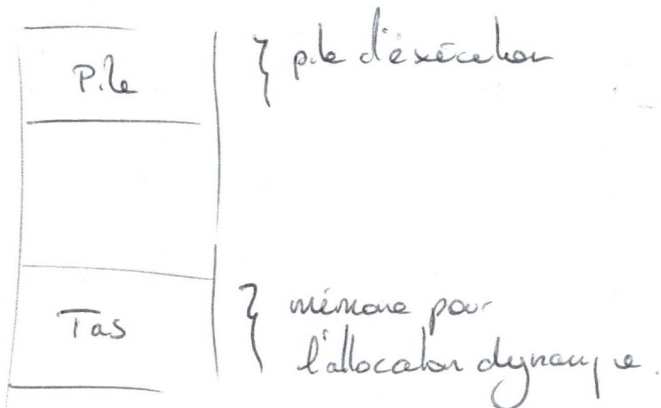 Pile
pile d'exécution
Tas
mémoire pour
l'allocation dynamique.